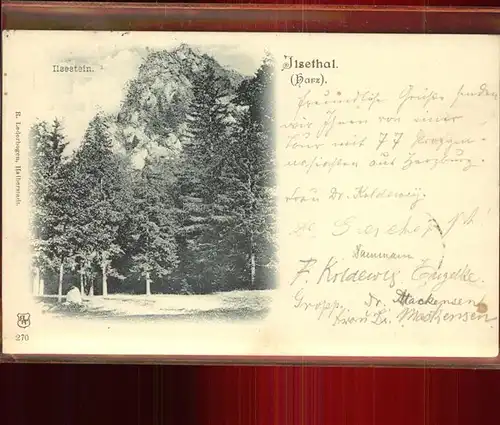 Ilsestein.
Ilsethal.
(Harz).
Freundliche Grüße senden
wir Ihnen von einer
Tour mit 77
aus Harzburg.
Frau Dr. Koldewey.
Dammann
F. Koldewey Engelke.
Gropp. Dr. Mackensen
Frau Dr. Mackensen
R. Lederbogen, Halberstadt.
270